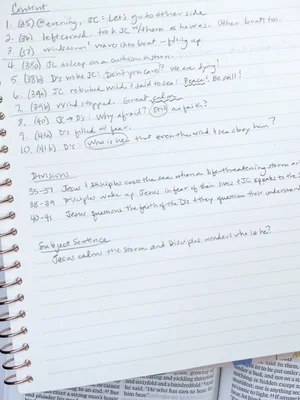 Content
1. (35) @ evening, JC: Let's go to other side
2. (36) left crowd. took JC w/them as he was. Other boats too.
3. (37) windstorm! waves into boat - filling up
4. (38a) JC asleep on a cushion in stern.
5. (38b) D's woke JC: Don't you care? We are dying!
6. (39a) JC rebuked wind & said to sea: Peace! Be still!
7. (39b) Wind stopped. Great calm
8. (40) Q → D's: Why afraid? Still no faith?
9. (41a) D's filled w/ fear.
10. (41b) D's: Who is he that even the wind & sea obey him?
Divisions
35-37 Jesus & Disciples cross the sea when a life-threatening storm
38-39 Disciples wake up Jesus in fear of their lives & JC speaks to the
40-41 Jesus questions the faith of the D's & they question their understand
Subject Sentence
Jesus calms the storm and Disciples wonder who is he?